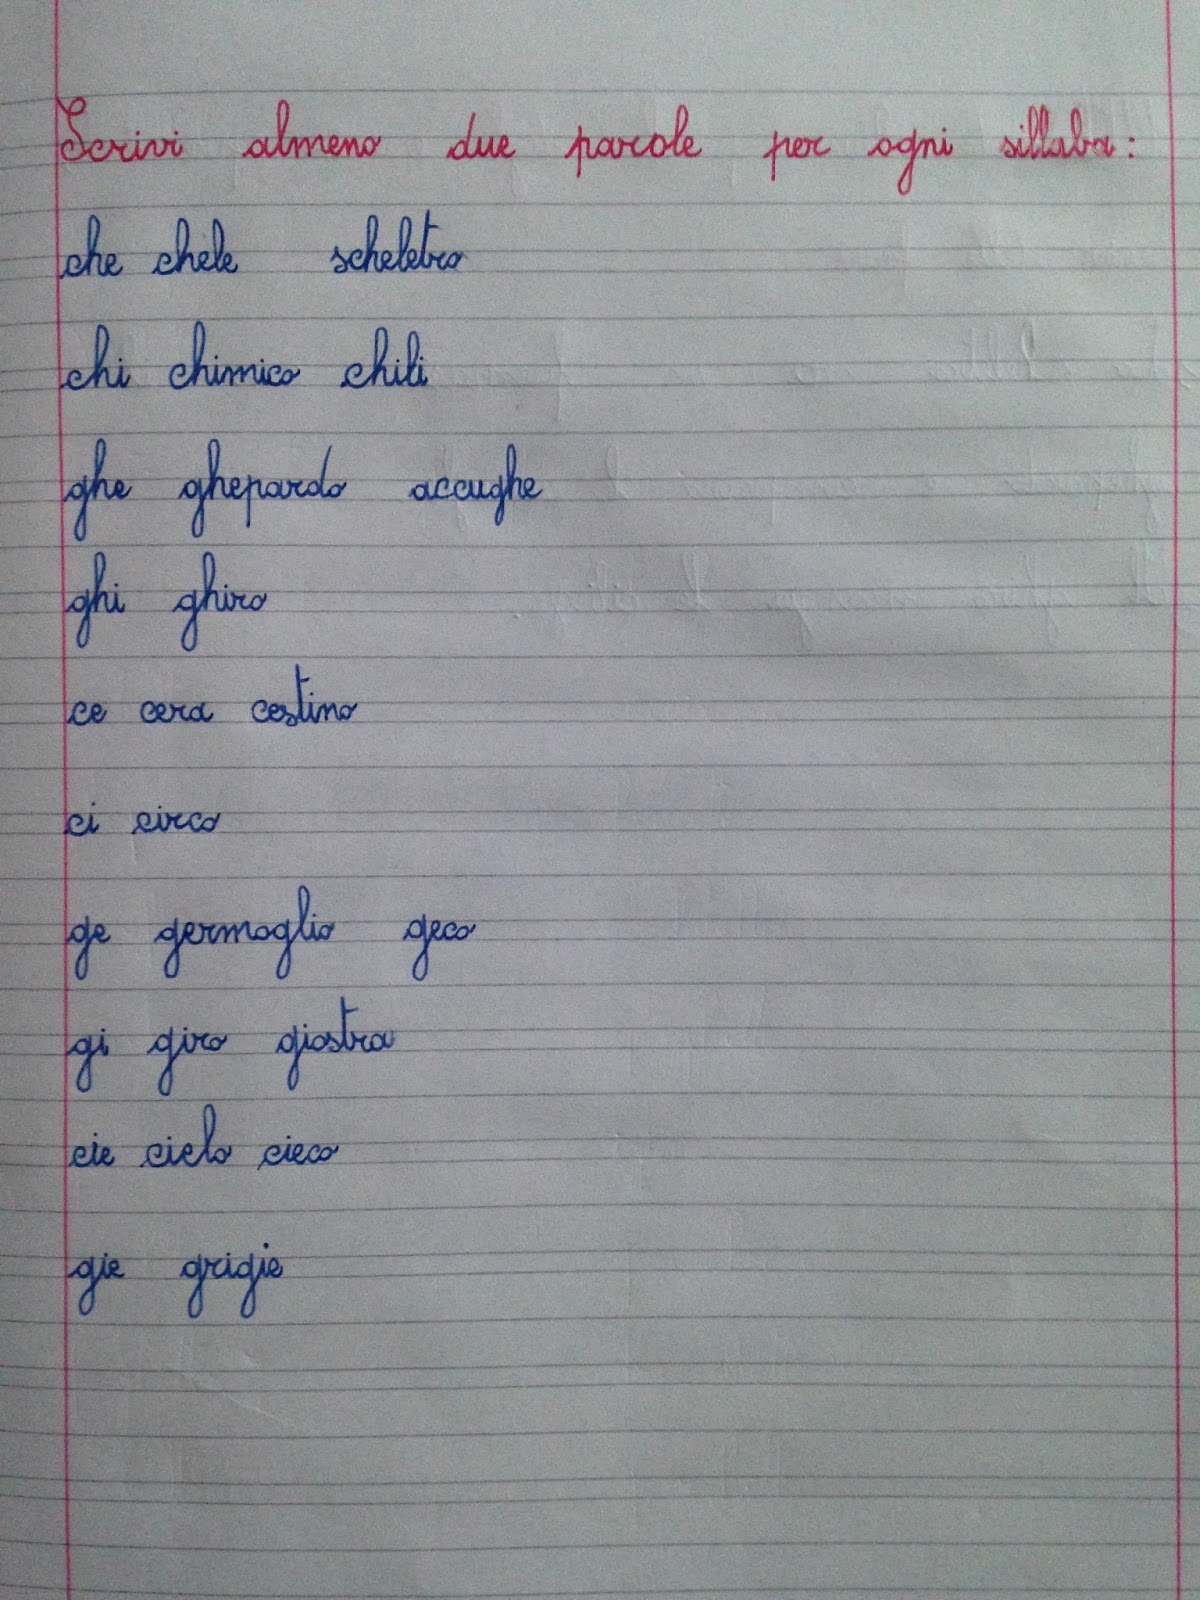 Scrivi almeno due parole per ogni sillaba:
che chele scheletro
chi chimico chili
ghe ghepardo acciughe
ghi ghiro
ce cera cestino
ci circo
ge germoglio geco
gi giro giostra
cie cielo cieco
gie grigie